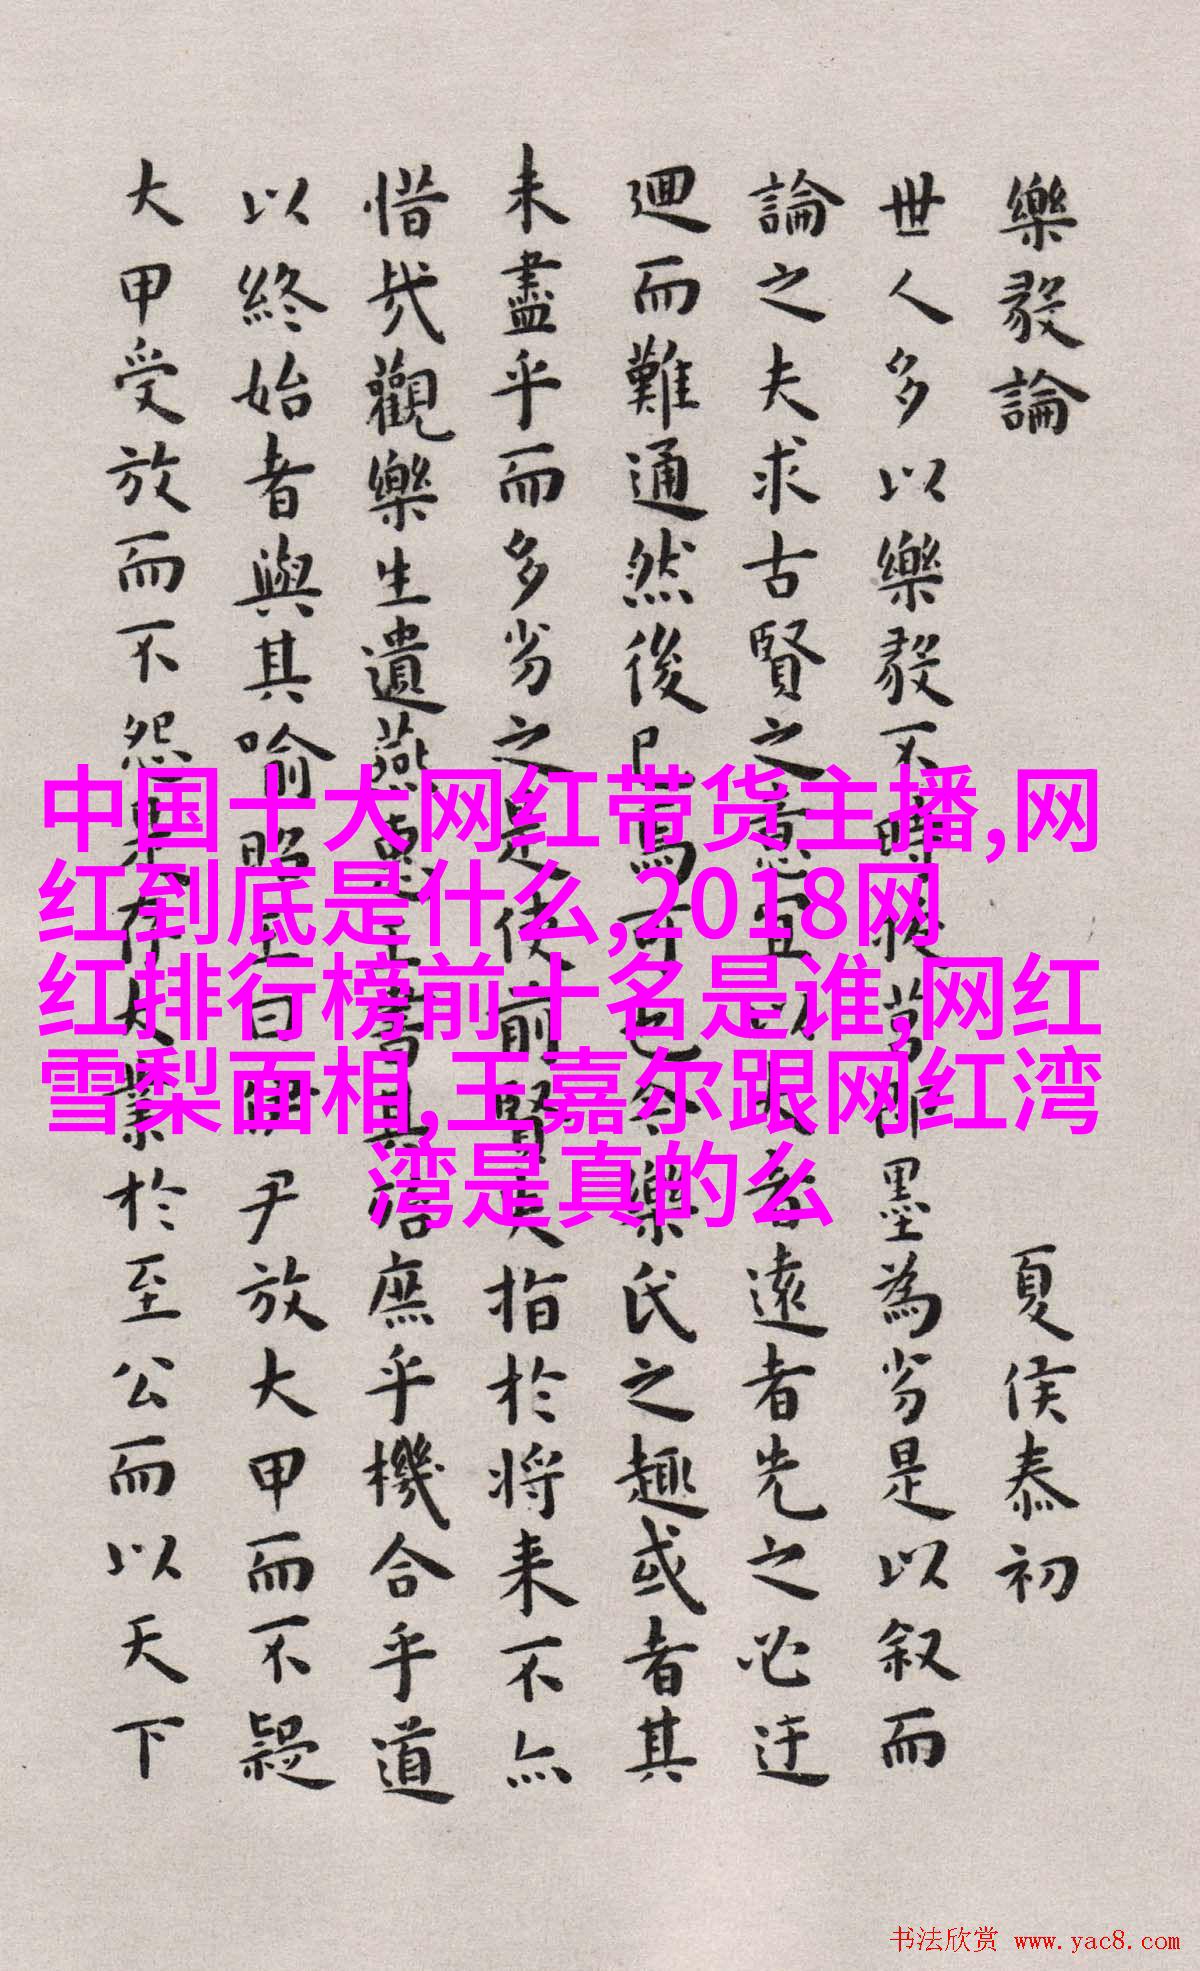 樂毅論 夏侯泰初
世人多以樂毅不時拔莒即墨為劣是以叙而
論之夫求古賢之意宜以大者遠者先之必迂
迴而難通然後已焉可也今樂氏之趣或者其
未盡乎而多劣之是使前賢失指於将来不亦
惜哉觀樂生遺燕惠王書其殆庶乎機合乎道
以終始者與其喻昭王曰伊尹放大甲而不疑
大甲受放而不怨是存大業於至公而以天下
中国十大网红带货主播,网
红到底是什么,2018网
红排行榜前十名是谁,网红
雪梨面相,王嘉尔跟网红湾
湾是真的么
书法欣赏 www.yac8.com